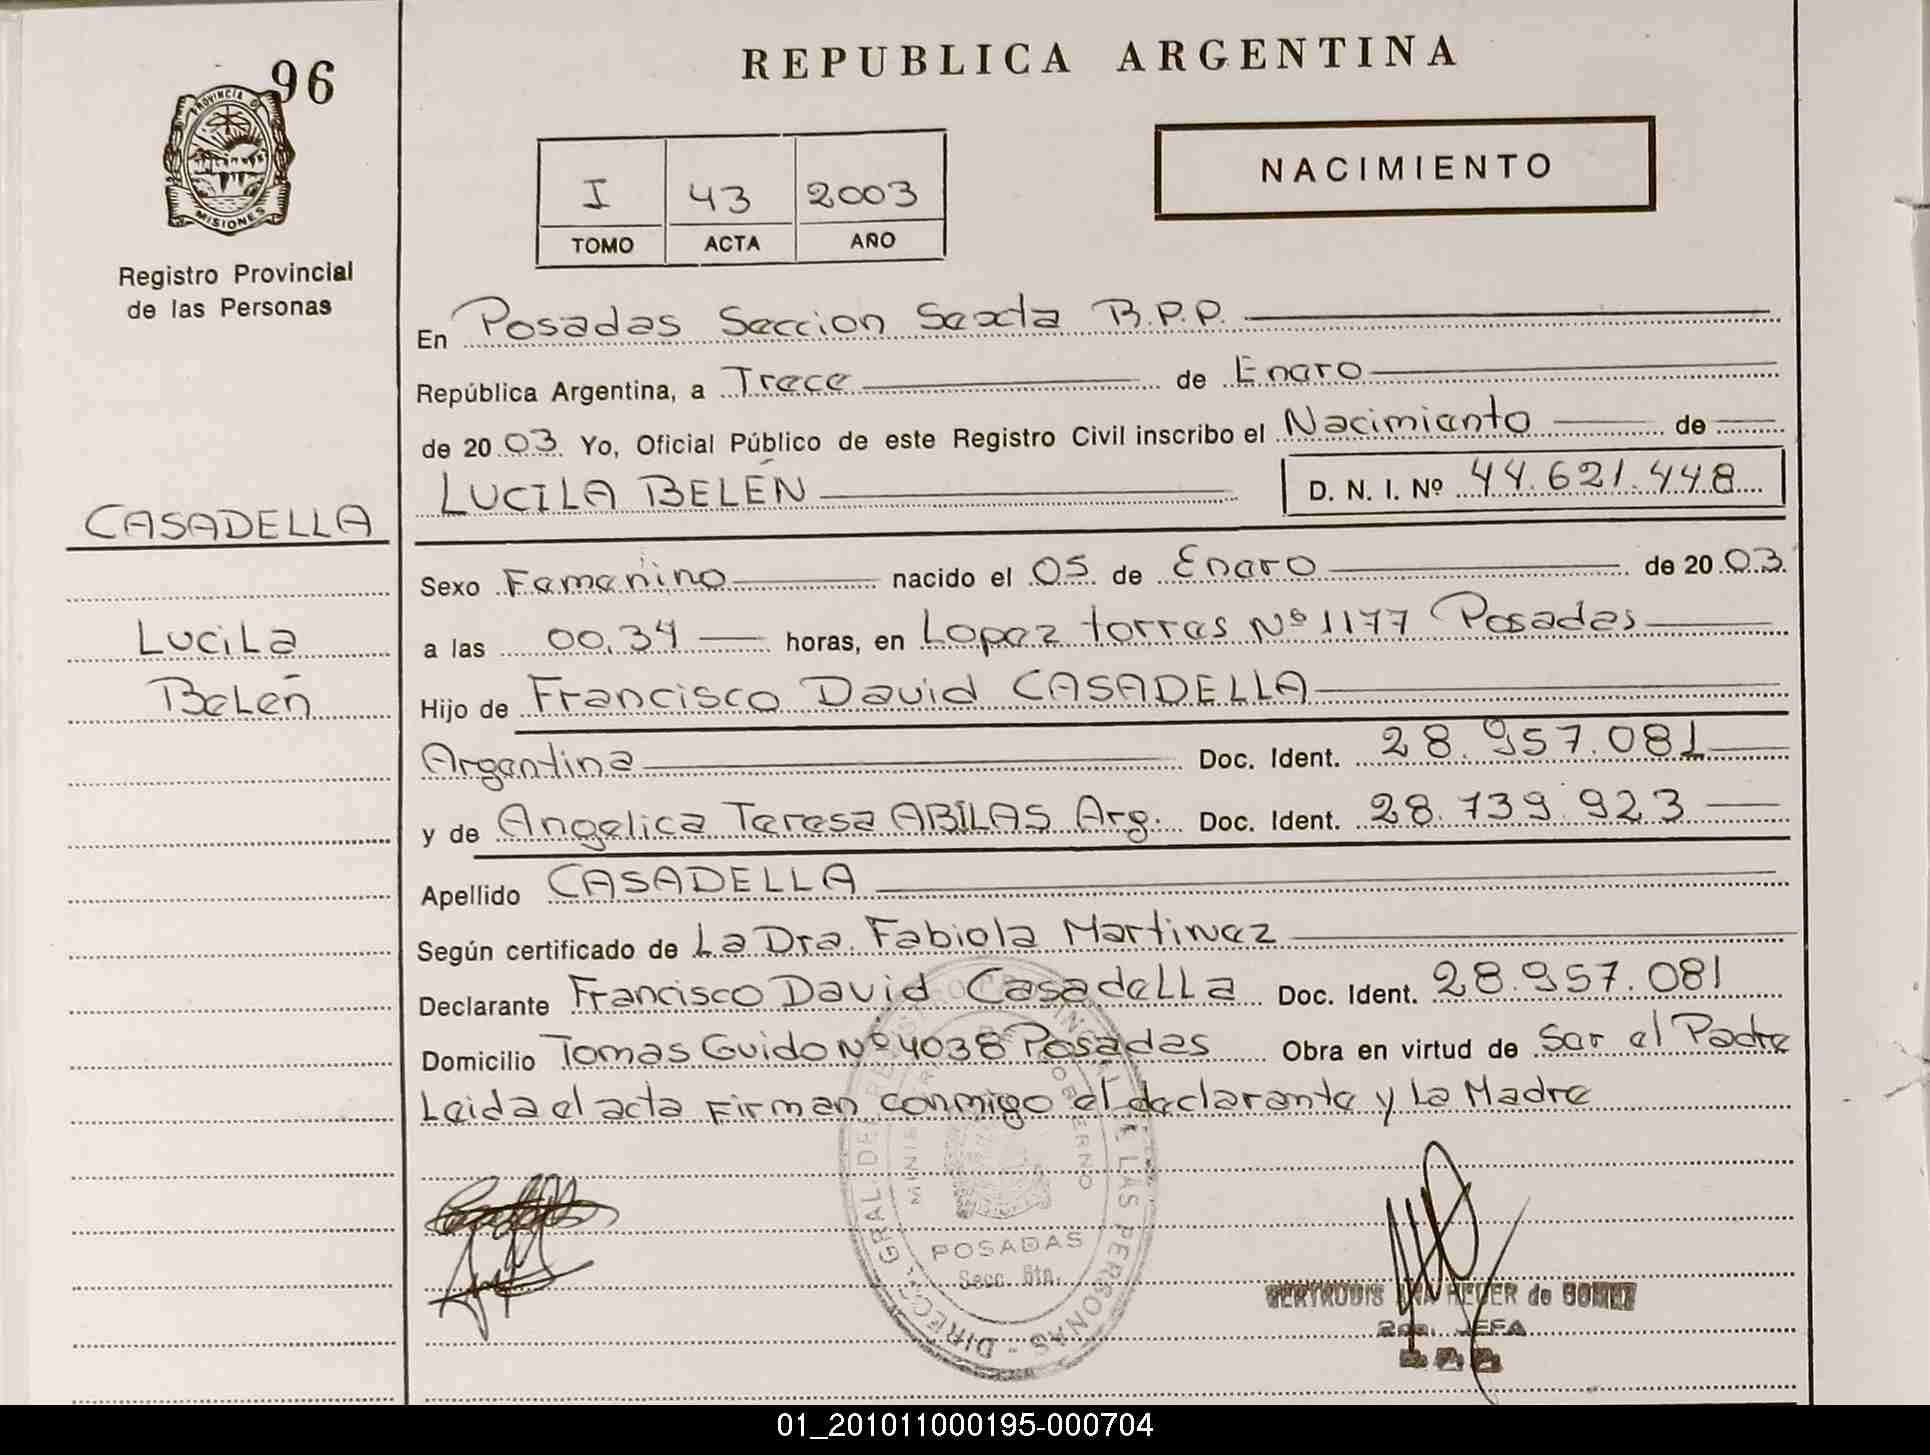 96
REPUBLICA ARGENTINA
PROVINCIA DE
MISIONES
Registro Provincial
de las Personas
I 43 2003
TOMO ACTA AÑO
NACIMIENTO
En Posadas Seccion Sexta R.P.P.
República Argentina, a Trece de Enero
de 2003. Yo, Oficial Público de este Registro Civil inscribo el Nacimiento de
LUCILA BELÉN D. N. I. Nº 44.621.448
CASADELLA
Lucila
Belén
Sexo Femenino nacido el 05 de Enero de 2003
a las 00.34 horas, en Lopez torres Nº 1177 Posadas
Hijo de Francisco David CASADELLA
Argentina Doc. Ident. 28.957.081
y de Angelica Teresa ABILAS Arg. Doc. Ident. 28.739.923
Apellido CASADELLA
Según certificado de La Dra. Fabiola Martinez
Declarante Francisco David Casadella Doc. Ident. 28.957.081
Domicilio Tomas Guido Nº 4038 Posadas Obra en virtud de Ser el Padre
Leida el acta Firman conmigo el declarante y La Madre
POSADAS
Secc. 6ta.
GERTRUDIS de GOMEZ
JEFA
01_201011000195-000704